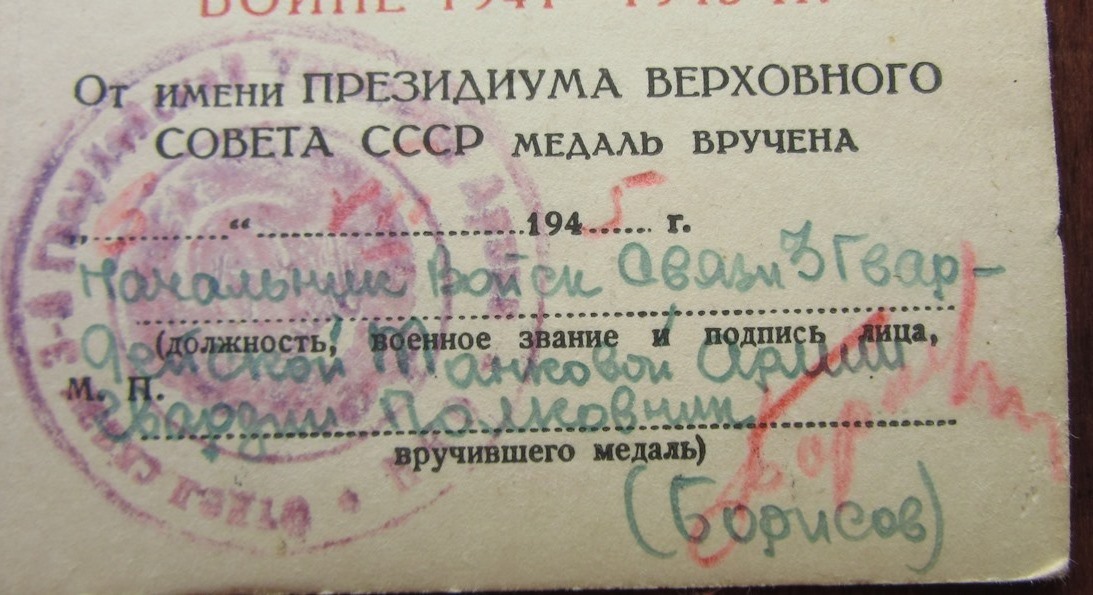 ВОЙНЕ 1941—1945 гг.
От имени ПРЕЗИДИУМА ВЕРХОВНОГО
СОВЕТА СССР медаль вручена
„ “ 1945 г.
Начальник Войск Связи 3 Гвар-
(должность, военное звание и подпись лица,
дейской Танковой Армии
М. П.
Гвардии Полковник
вручившего медаль)
(Борисов)
3-й Гвардейской
Отдел связи